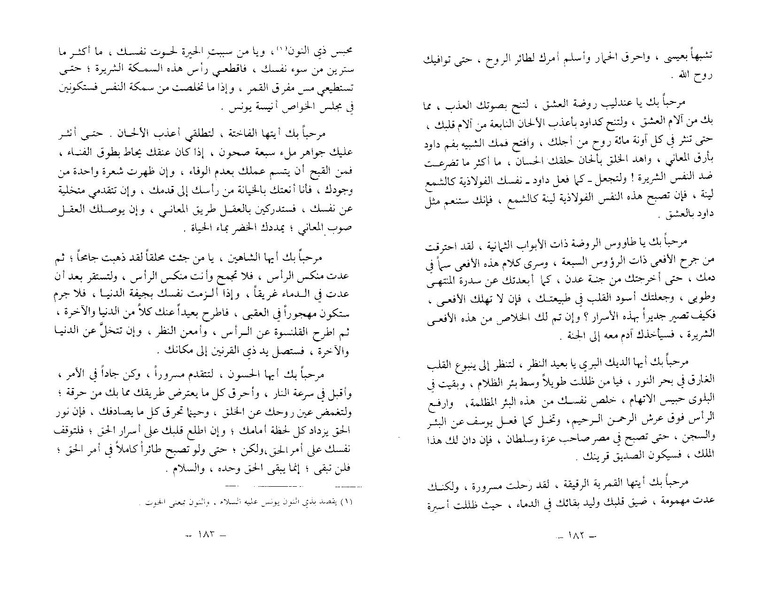 تشبهاً بعيسى ، واحرق الحمار وأسلم أمرك لطائر الروح ، حتى توافيك
روح الله .
مرحباً بك يا عندليب روضة العشق ، لتنح بصوتك العذب ، مما
بك من آلام العشق ، ولتنح كداود بأعذب الألحان النابعة من آلام قلبك ،
حتى تنثر في كل آونة مائة روح من أجلك ، وافتح فمك الشبيه بفم داود
بأرق المعاني ، واهد الخلق بألحان حلقك الحسان ، ما أكثر ما تضرعت
ضد النفس الشريرة ! ولتجعل ـ كما فعل داود ـ نفسك الفولاذية كالشمع
لينة ، فإن تصبح هذه النفس الفولاذية لينة كالشمع ، فإنك ستنعم مثل
داود بالعشق .
مرحباً بك يا طاووس الروضة ذات الأبواب الثمانية ، لقد احترقت
من جرح الأفعى ذات الرؤوس السبعة ، وسرى كلام هذه الأفعى سماً في
دمك ، حتى أخرجتك من جنة عدن ، كما أبعدتك عن سدرة المنتهى
وطوبى ، وجعلتك أسود القلب في طبيعتك ، فإن لا تهلك الأفعى ،
فكيف تصير جديراً بهذه الأسرار ؟ وإن تم لك الخلاص من هذه الأفعى
الشريرة ، فسيأخذك آدم معه إلى الجنة .
مرحباً بك أيها الديك البري يا بعيد النظر ، لتنظر إلى ينبوع القلب
الغارق في بحر النور ، فيا من ظللت طويلاً وسط بئر الظلام ، وبقيت في
البلوى حبيس الاتهام ، خلص نفسك من هذه البئر المظلمة ، وارفع
الرأس فوق عرش الرحمن الرحيم، وتخل كما فعل يوسف عن البشر
والسجن ، حتى تصبح في مصر صاحب عزة وسلطان ، فإن دان لك هذا
الملك ، فسيكون الصديق قرينك .
مرحباً بك أيتها القمرية الرقيقة ، لقد رحلت مسرورة ، ولكنك
عدت مهمومة ، ضيق قلبك وليد بقائك في الدماء ، حيث ظللت أسيرة
ـ ١٨٢ ـ
محبس ذي النون(١)، ويا من سببت الحيرة لحوت نفسك ، ما أكثر ما
سترين من سوء نفسك ، فاقطعي رأس هذه السمكة الشريرة ؛ حتى
تستطيعي مس مفرق القمر ، وإذا ما تخلصت من سمكة النفس فستكونين
في مجلس الخواص أنيسة يونس .
مرحباً بك أيتها الفاختة ، لتطلقي أعذب الألحان . حتى أنثر
عليك جواهر ملء سبعة صحون ، إذا كان عنقك يحاط بطوق الفناء ،
فمن القبح أن يتسم عملك بعدم الوفاء ، وإن ظهرت شعرة واحدة من
وجودك ، فأنا أنعتك بالخيانة من رأسك إلى قدمك ، وإن تتقدمي متخلية
عن نفسك ، فستدركين بالعقل طريق المعاني ، وإن يوصلك العقل
صوب المعاني ؛ يمددك الخضر بماء الحياة .
مرحباً بك أيها الشاهين ، يا من جئت محلقاً لقد ذهبت جامحاً ؛ ثم
عدت منكس الرأس ، فلا تجمح وأنت منكس الرأس ، ولتستقر بعد أن
عدت في الدماء غريقاً ، وإذا ألزمت نفسك بجيفة الدنيا ، فلا جرم
ستكون مهجوراً في العقبى ، فاطرح بعيداً عنك كلاً من الدنيا والآخرة ،
ثم اطرح القلنسوة عن الرأس ، وأمعن النظر ، وإن تتخلَّ عن الدنيا
والآخرة ، فستصل يد ذي القرنين إلى مكانك .
مرحباً بك أيها الحسون ، لتتقدم مسروراً ، وكن جاداً في الأمر ،
وأقبل في سرعة النار ، وأحرق كل ما يعترض طريقك مما بك من حرقة ؛
ولتغمض عين روحك عن الخلق ، وحينما تحرق كل ما يصادفك ، فإن نور
الحق يزداد كل لحظة أمامك ؛ وإن اطلع قلبك على أسرار الحق ؛ فلتوقف
نفسك على أمر الحق ولكن ؛ حتى ولو تصبح طائراً كاملاً في أمر الحق ؛
فلن تبقى ؛ إنما يبقى الحق وحده ، والسلام .
(١) يقصد بذي النون يونس عليه السلام ، والنون بمعنى الحوت .
ـ ١٨٣ ـ